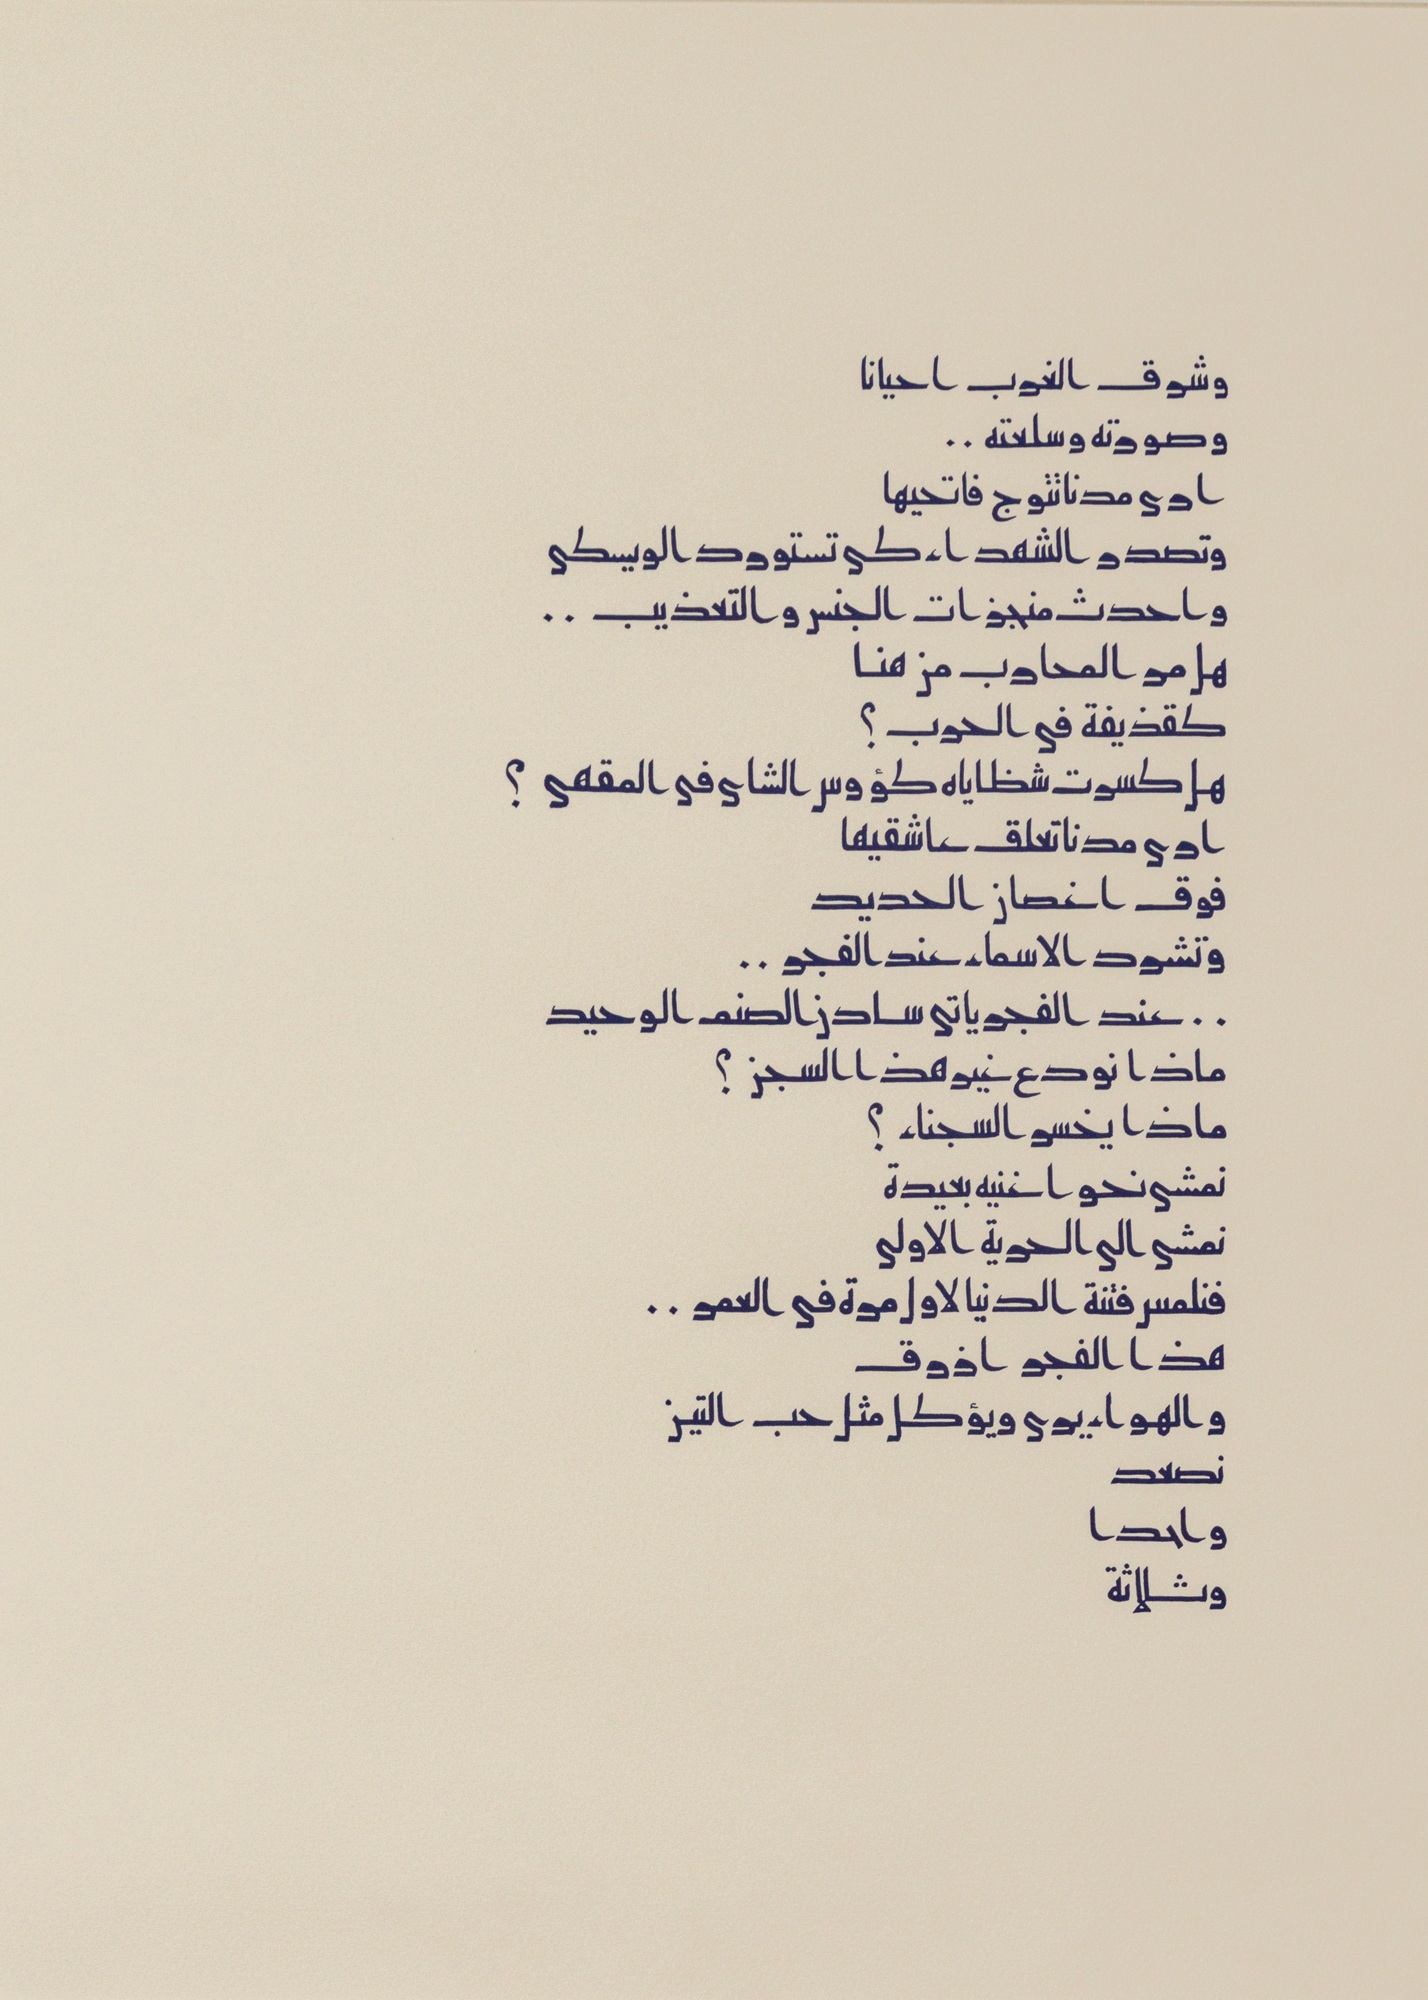 وشرق الغرب احيانا
وصورته وسلعته ..
ارى مدنا تتوج فاتحيها
وتصدر الشهداء كي تستورد الويسكي
واحدث منجزات الجنس والتعذيب ..
هل مر المحارب من هنا
كقذيفة في الحرب ؟
هل كسرت شظاياه كؤوس الشاي في المقهى ؟
ارى مدنا تعلق عاشقيها
فوق اغصان الحديد
وتشرد الاسماء عند الفجر ..
.. عند الفجر ياتي سادن الصنم الوحيد
ماذا نودع غير هذا السجن ؟
ماذا يخسر السجناء ؟
نمشي نحو اغنيه بعيدة
نمشي الى الحرية الاولى
فنلمس فتنة الدنيا لاول مرة في العمر ..
هذا الفجر ازرق
والهواء يرى ويؤكل مثل حب التين
نصعد
واحدا
وثلاثة